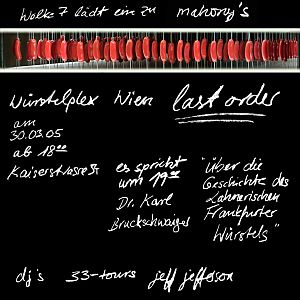 Wolke 7 lädt ein zu mahony's
Würstelplex Wien last order
am
30.03.05
ab 18 00
Kaiserstrasse
es spricht
um 19 00
Dr. Karl
Bruckschwaiger
"Über die
Geschichte des
Lahnerischen
Frankfurter
Würstels"
dj's 33-tours jeff jefferson